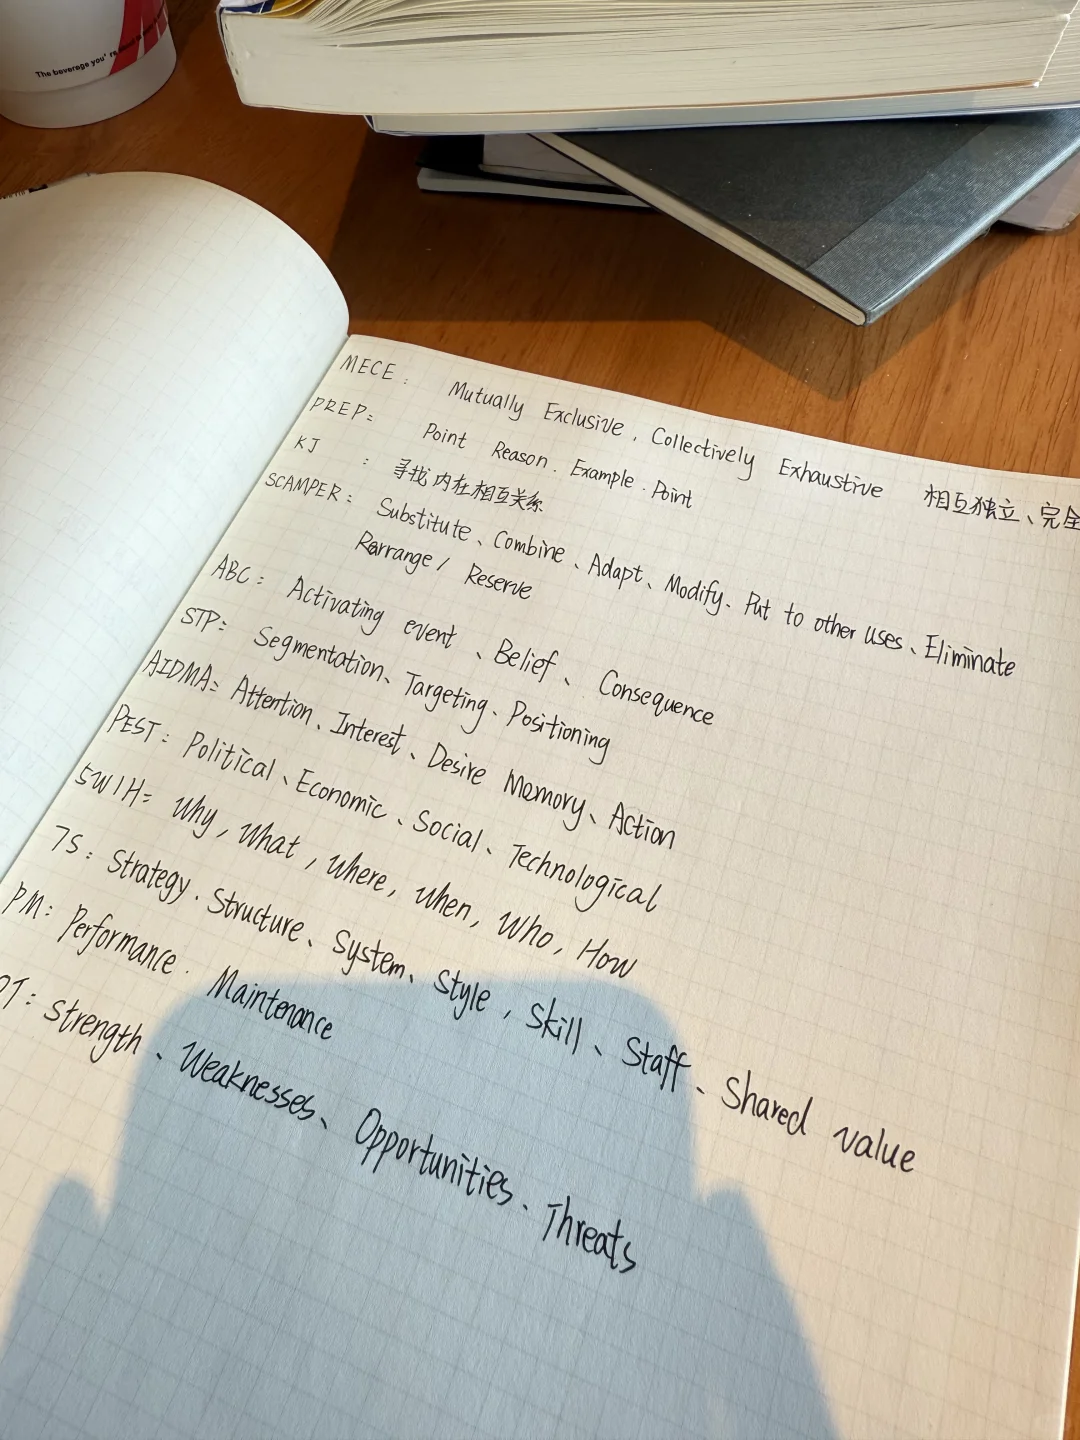 The beverage you're
MECE: Mutually Exclusive, Collectively Exhaustive 相互独立、完全
PREP: Point Reason. Example. Point
KJ : 寻找内在相互关系
SCAMPER: Substitute、Combine、Adapt、Modify、Put to other uses、Eliminate
Rarrange/ Reserve
ABC: Activating event、Belief、Consequence
STP: Segmentation、Targeting、Positioning
AIDMA: Attention、Interest、Desire Memory、Action
PEST: Political、Economic、Social、Technological
5W1H: Why, What, Where, When, Who, How
7S: Strategy. Structure、System、Style, Skill、Staff、Shared value
PM: Performance. Maintenance
OT: Strength、Weaknesses、Opportunities、Threats